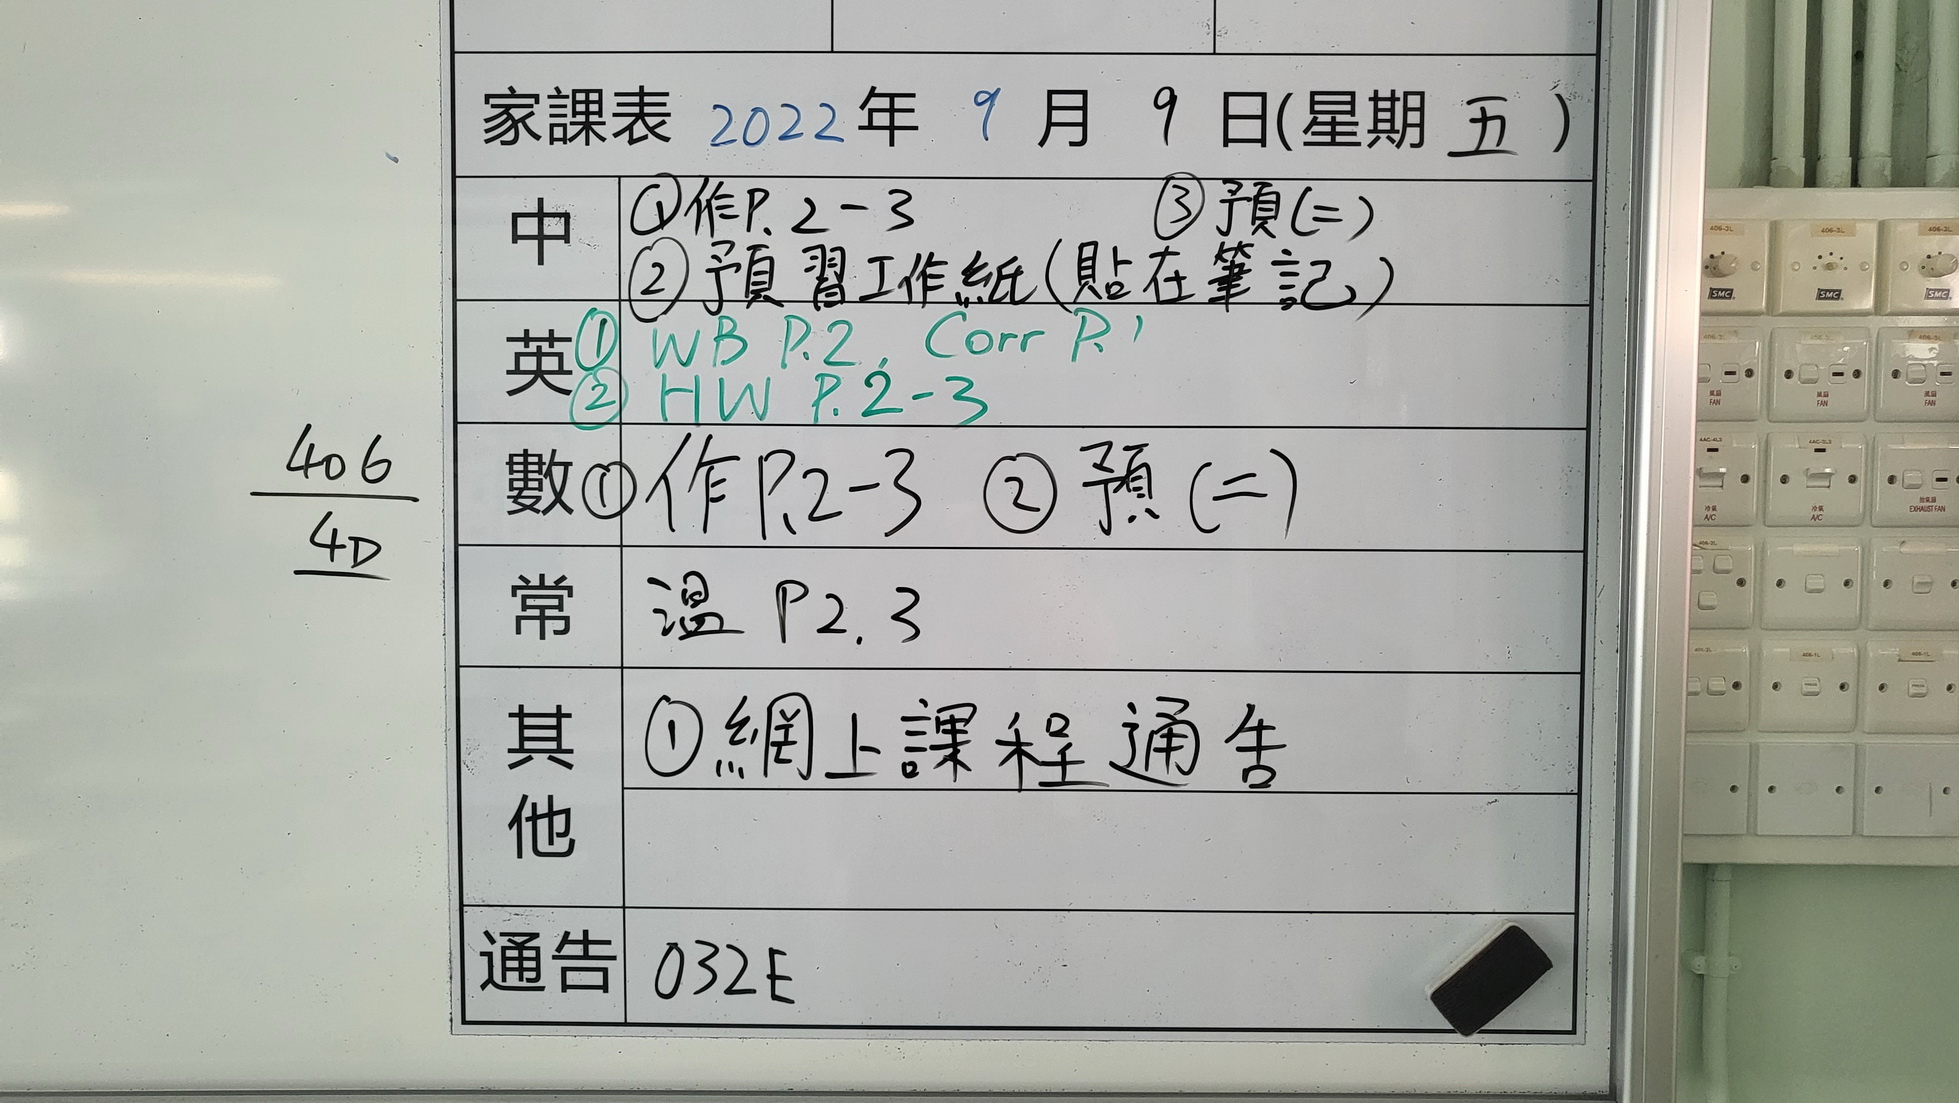 家課表 2022年 9 月 9 日(星期 五 )
中 ①作P.2-3 ③預(二)
②預習工作紙(貼在筆記)
英 ① WB P.2, Corr P.1
② HW P.2-3
數 ①作P.2-3 ②預(二)
常 溫 P2.3
其他 ①網上課程通告
通告 032E
406
4D
406-3L
SMC
SMC
SMC
風扇
FAN
風扇
FAN
風扇
FAN
冷氣
A/C
冷氣
A/C
抽氣扇
EXHAUST FAN